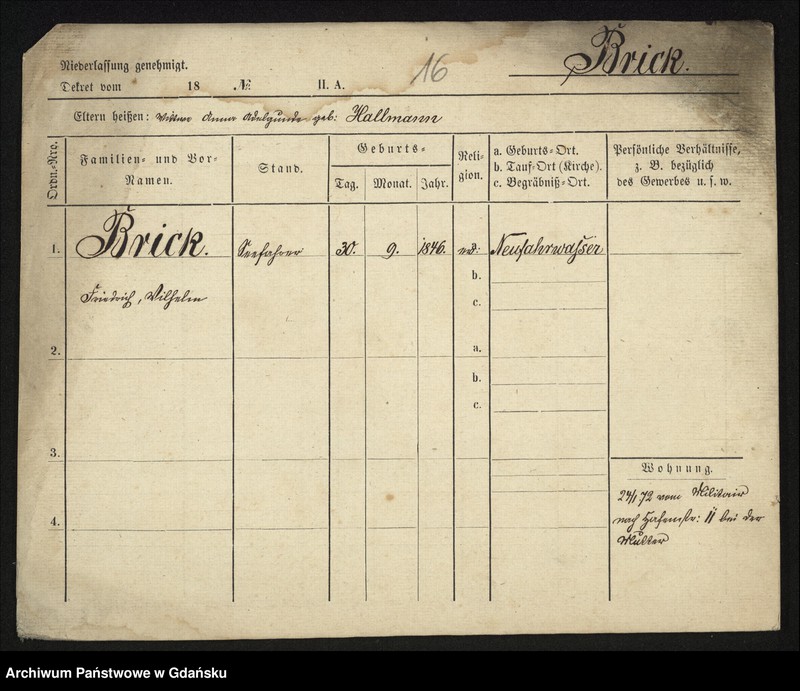 Niederlassung genehmigt.
Dekret vom 18 № II. A.
16
Brick.
Eltern heißen: Wittwe Anna Adelgunde geb: Hallmann
Ordn.-Nro.
Familien- und Vor-
Namen.
Stand.
Geburts-
Tag. Monat. Jahr.
Reli-
gion.
a. Geburts-Ort.
b. Tauf-Ort (Kirche).
c. Begräbniß-Ort.
Persönliche Verhältnisse,
z. B. bezüglich
des Gewerbes u. s. w.
1. Brick. Seefahrer 30. 9. 1846. Neufahrwasser
b.
Friedrich, Wilhelm
c.
2. a.
b.
c.
3.
Wohnung.
24/1 72 vom Militair
nach Hafenstr: 11 bei der
Mutter
4.
Archiwum Państwowe w Gdańsku